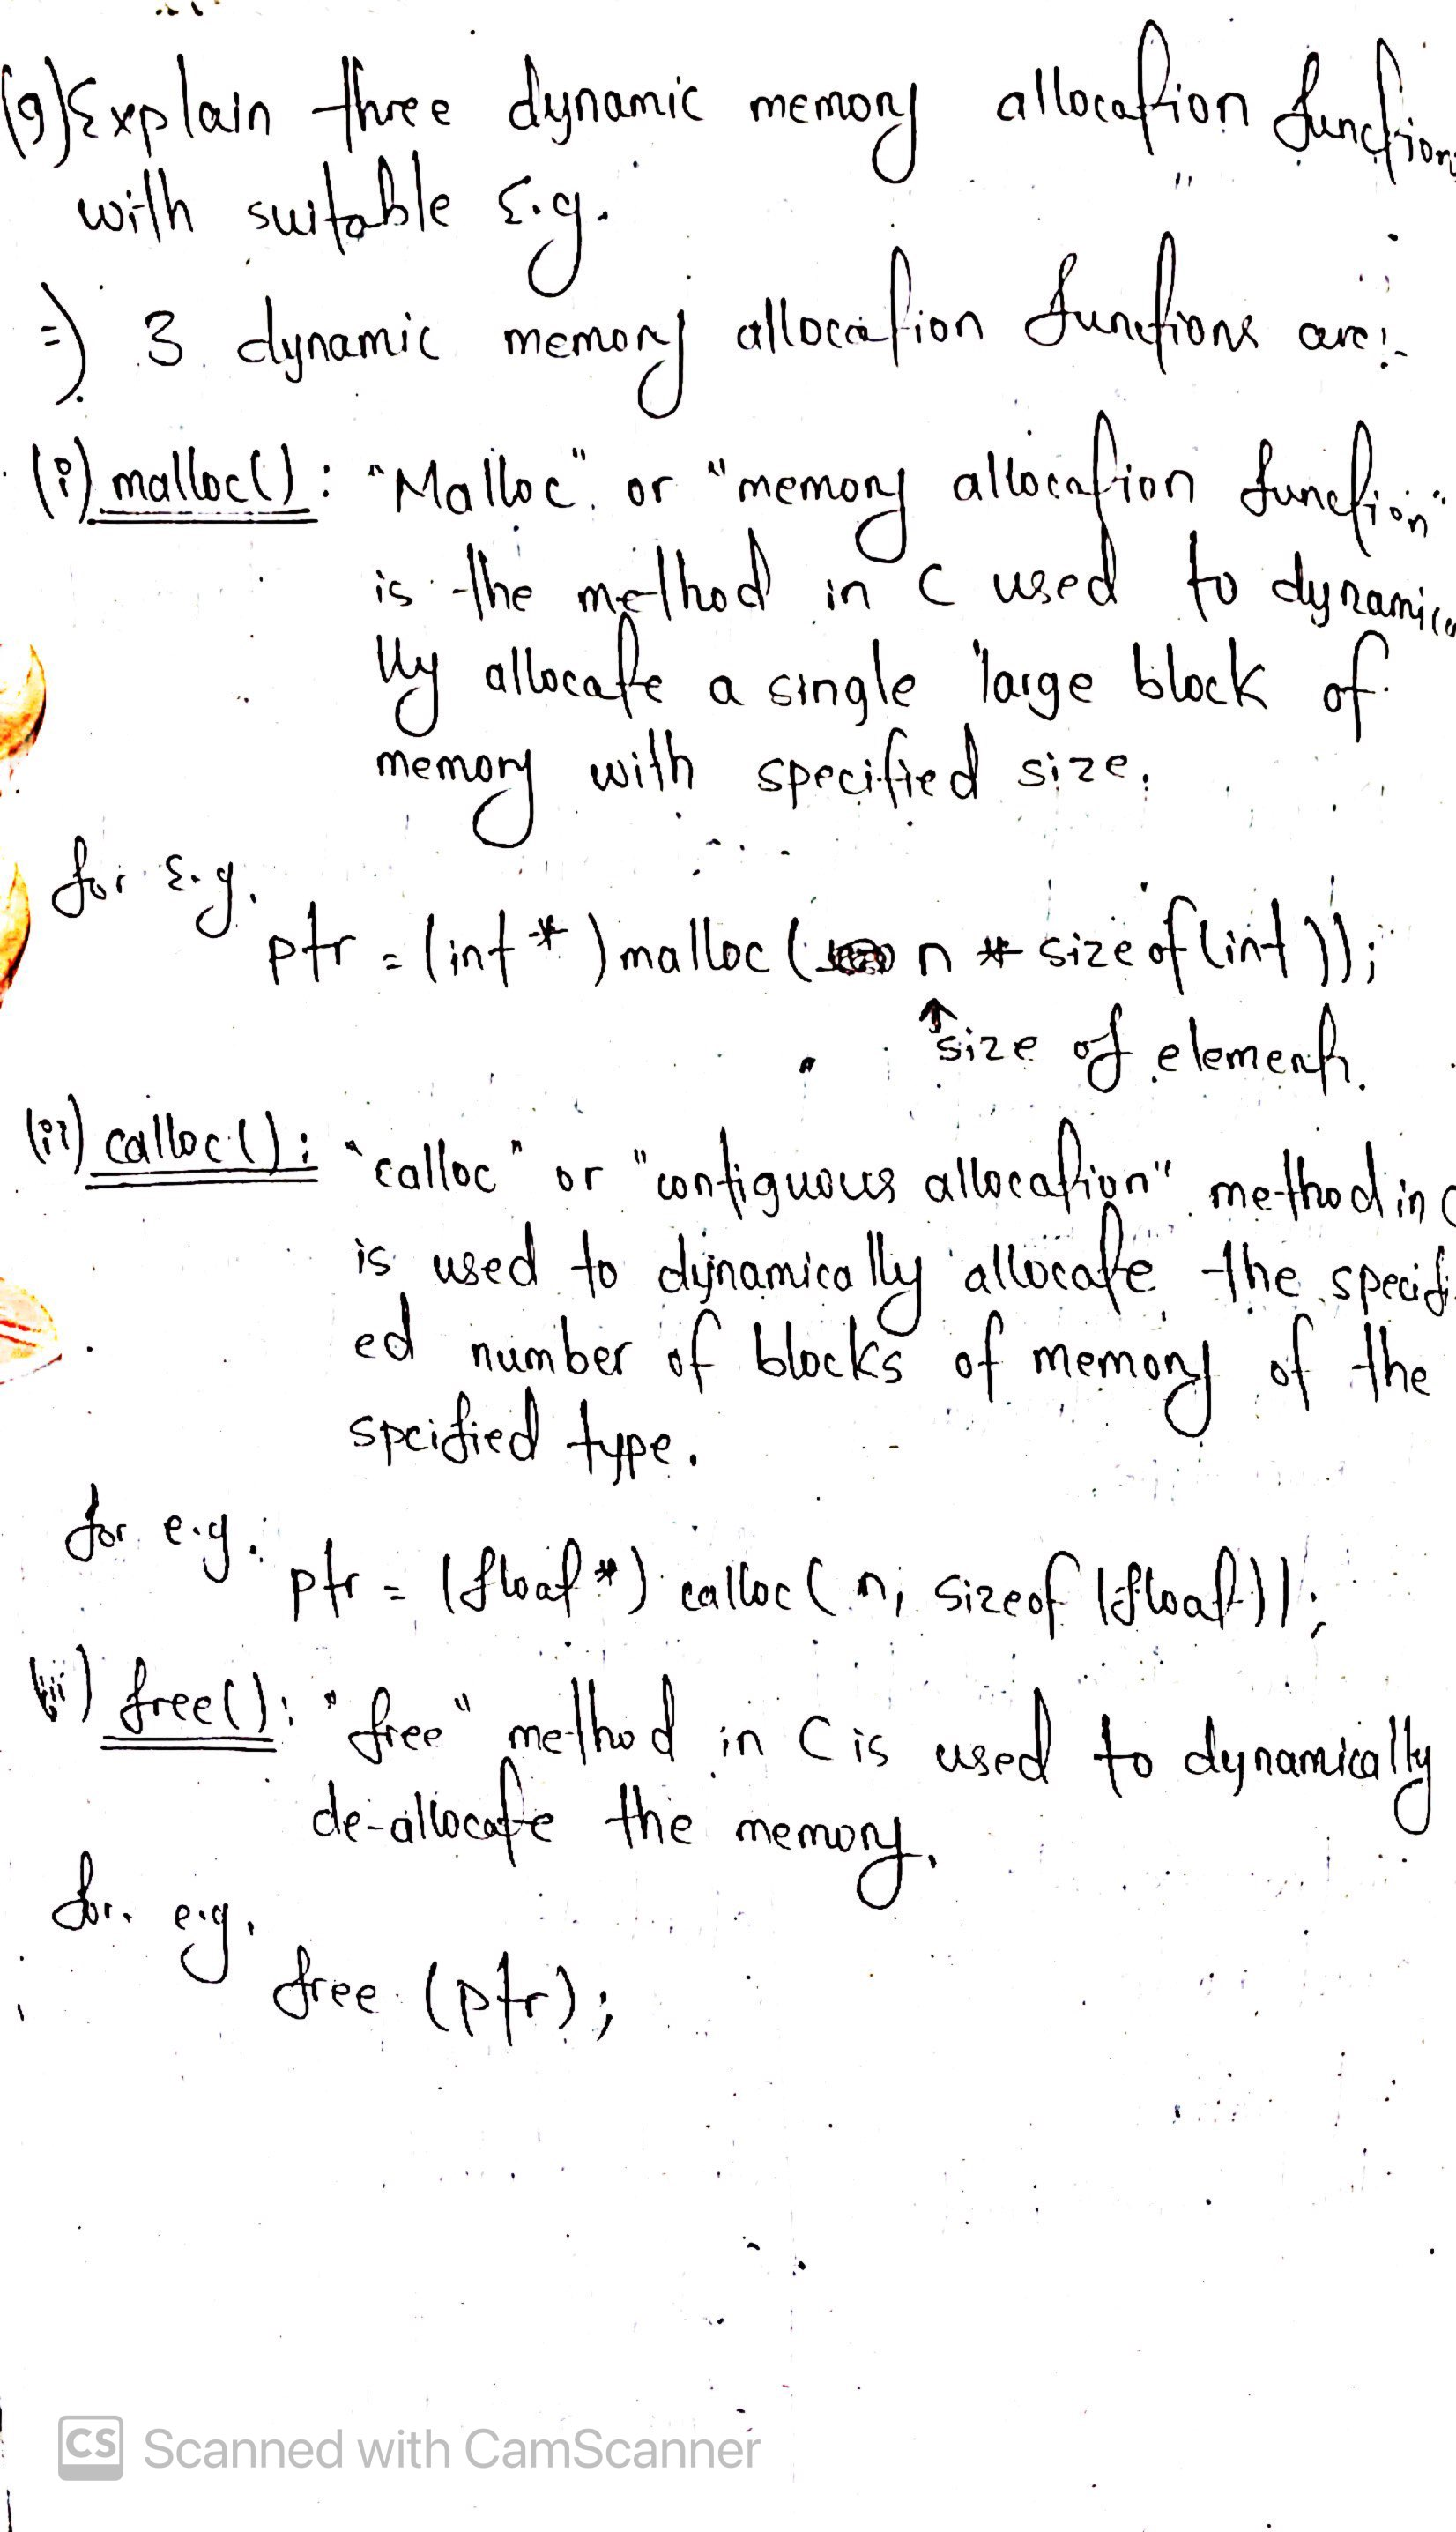 (9) Explain three dynamic memory allocation functions
with suitable E.g.
=) 3 dynamic memory allocation functions are:-
(i) malloc() : "Malloc" or "memory allocation function"
is the method in C used to dynamica
lly allocate a single large block of
memory with specified size.
for E.g.
ptr = (int *) malloc ( n * sizeof(int));
↑
size of elements.
(ii) calloc() : "calloc" or "contiguous allocation" method in C
is used to dynamically allocate the specifi
ed number of blocks of memory of the
spcified type.
for e.g.
ptr = (float *) calloc ( n, sizeof (float));
(iii) free() : "free" method in C is used to dynamically
de-allocate the memory.
for. e.g.
free (ptr);
CS Scanned with CamScanner